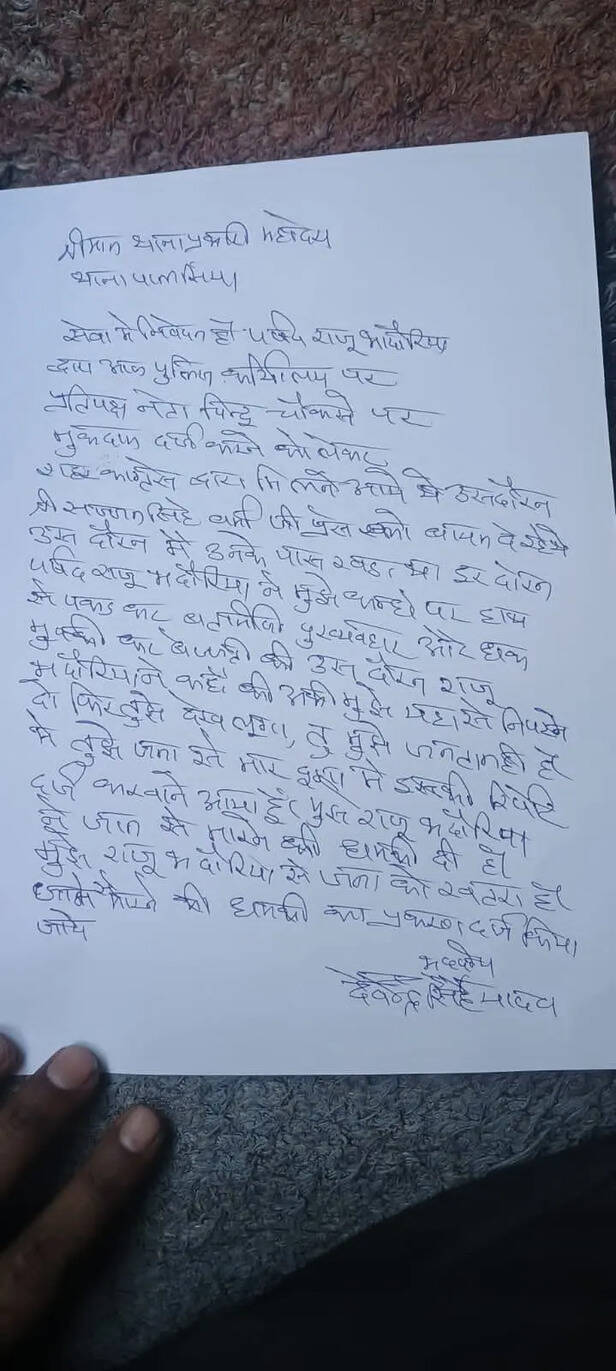 श्रीमान थाना प्रभारी महोदय
थाना पलासिया
सेवा मे निवेदन है पार्षद राजू भदौरिया
द्वारा आज पुलिस कार्यालय पर
प्रतिपक्ष नेता चिन्टू चौकसे पर
मुकदमा दर्ज करने को लेकर
शहर कान्ग्रेस द्वारा मिलने आये थे उस दौरान
श्री सज्जन सिंह वर्मा जी प्रेस को बायन दे रहे थे
उस दौरन मे उनके पास खडा था इस दोरन
पार्षद राजू भदौरिया ने मुझे कन्धे पर हाथ
से पकड कर बतमिजी दुरव्यवहार ओर धक
मुक्की कर की उस दौरन राजू
भदौरिया ने कहा की अभी मुझे यहा से निपटने
दो फिर तुझे देख लुगा, तु मुझे जनता नही है
मे तुझे जना से मार दुगा मे इसकी रिपोर्ट
दर्ज करवाने आया हूँ मुझे राजू भदौरिया
ने जान से मारने की धमकी दी है
मुझे राजू भदौरिया से जना को खतरा है
जान से मारने की धमकी का प्रकरण दर्ज किया
जाये
भवदीय
देवेन्द्र सिंह यादव